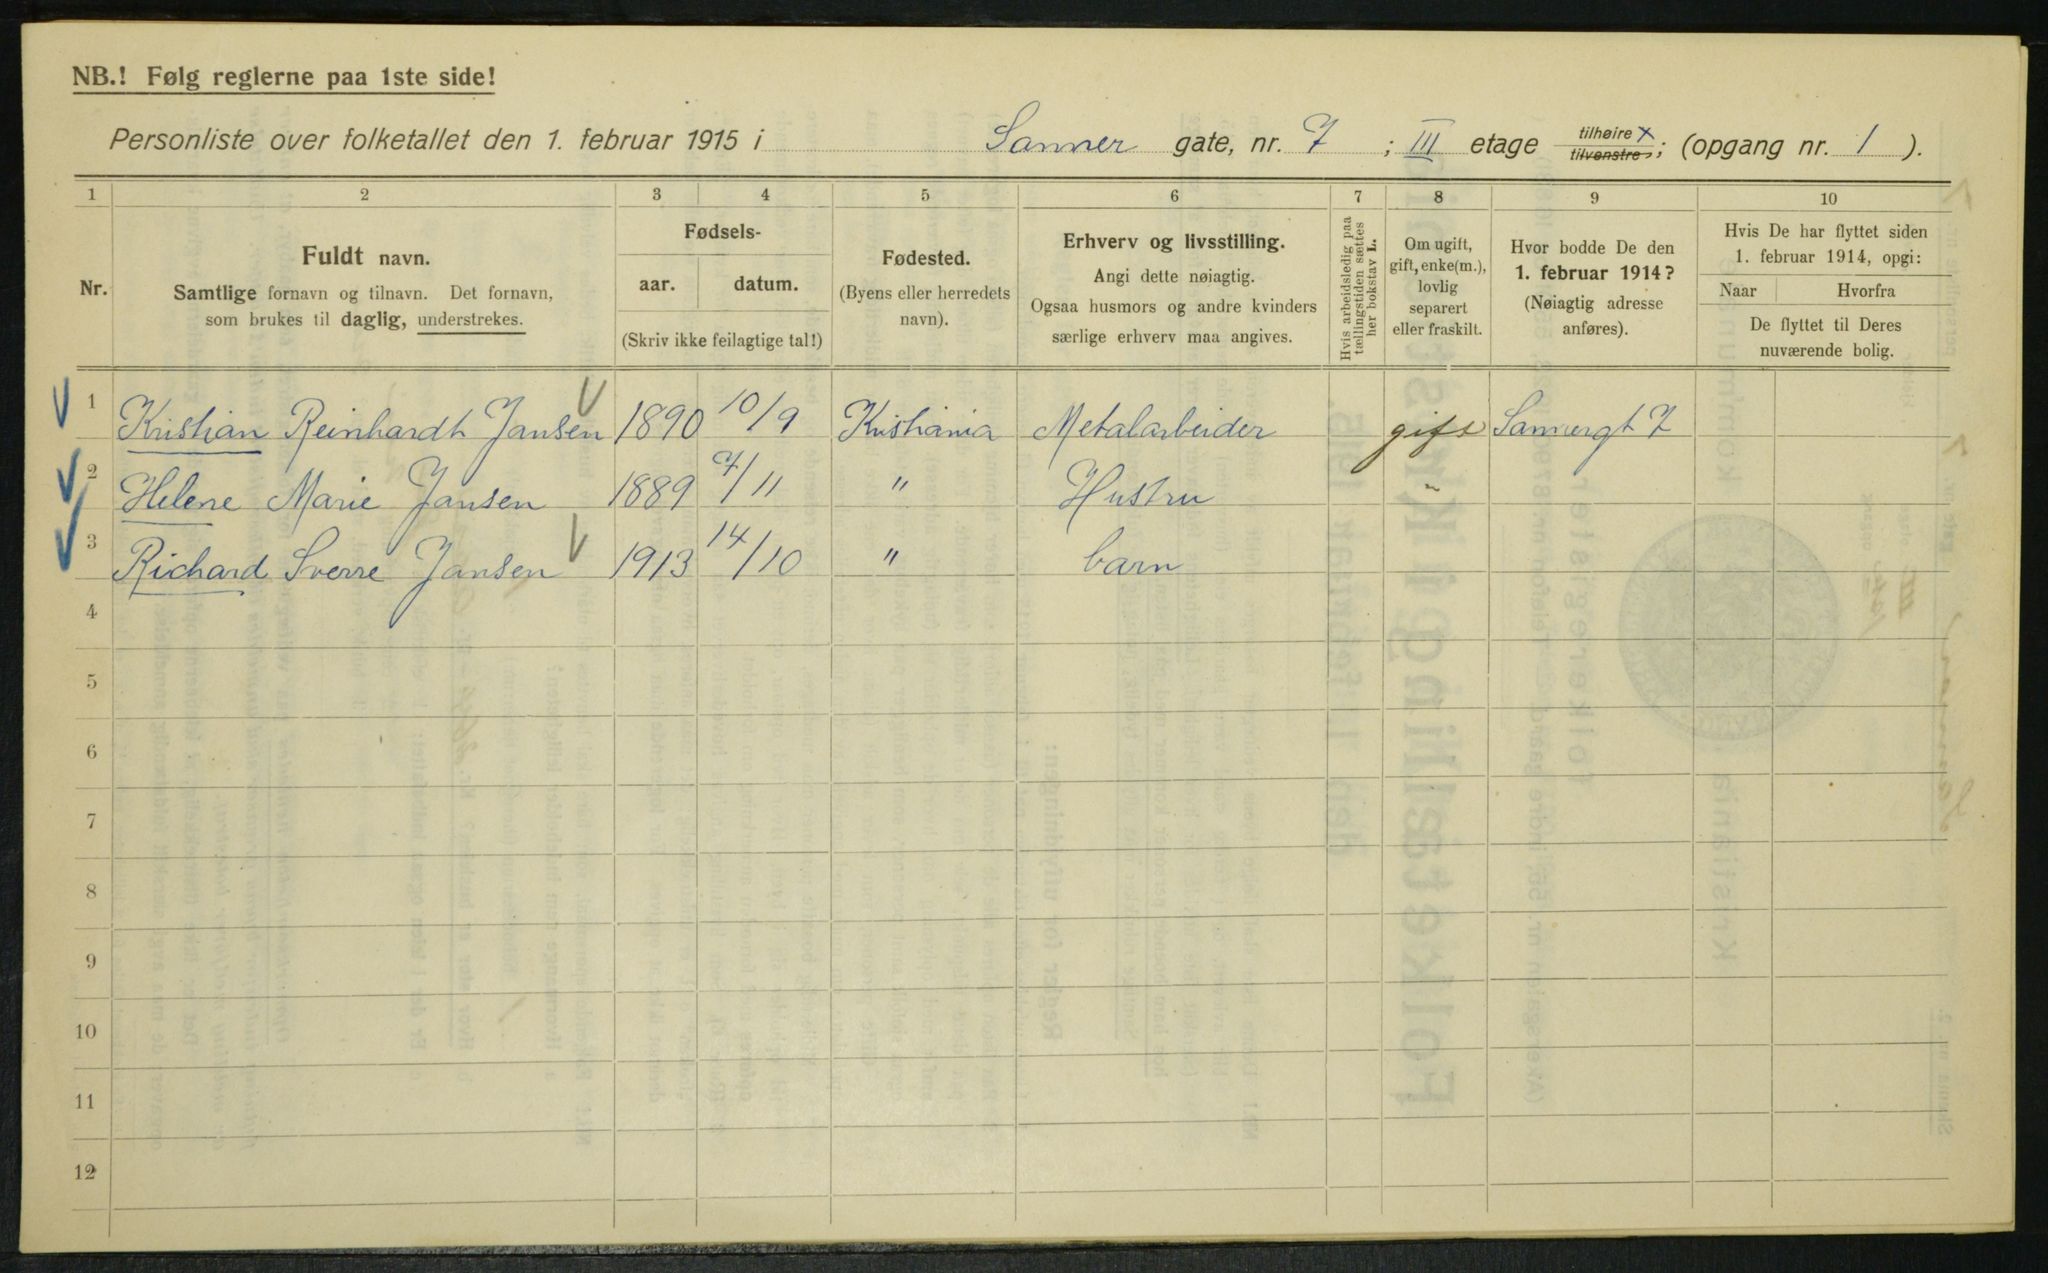 NB.! Følg reglerne paa 1ste side!
Personliste over folketallet den 1. februar 1915 i Sanner gate, nr. 7 ; III etage tilhøire x tilvenstre ; (opgang nr. 1 ).
1 2 3 4 5 6 7 8 9 10
Nr.
Fuldt navn.
Samtlige fornavn og tilnavn. Det fornavn,
som brukes til daglig, understrekes.
Fødsels-
aar. datum.
(Skriv ikke feilagtige tal!)
Fødested.
(Byens eller herredets
navn).
Erhverv og livsstilling.
Angi dette nøiagtig.
Ogsaa husmors og andre kvinders
særlige erhverv maa angives.
Hvis arbeidsledig paa
tællingstiden sættes
her bokstav L.
Om ugift,
gift, enke(m.),
lovlig
separert
eller fraskilt.
Hvor bodde De den
1. februar 1914?
(Nøiagtig adresse
anføres).
Hvis De har flyttet siden
1. februar 1914, opgi:
Naar Hvorfra
De flyttet til Deres
nuværende bolig.
1 Kristian Reinhardt Jansen 1890 10/9 Kristiania Metalarbeider gift Sannergt 7
2 Helene Marie Jansen 1889 7/11 " Hustru "
3 Richard Sverre Jansen 1913 14/10 " barn
4
5
6
7
8
9
10
11
12